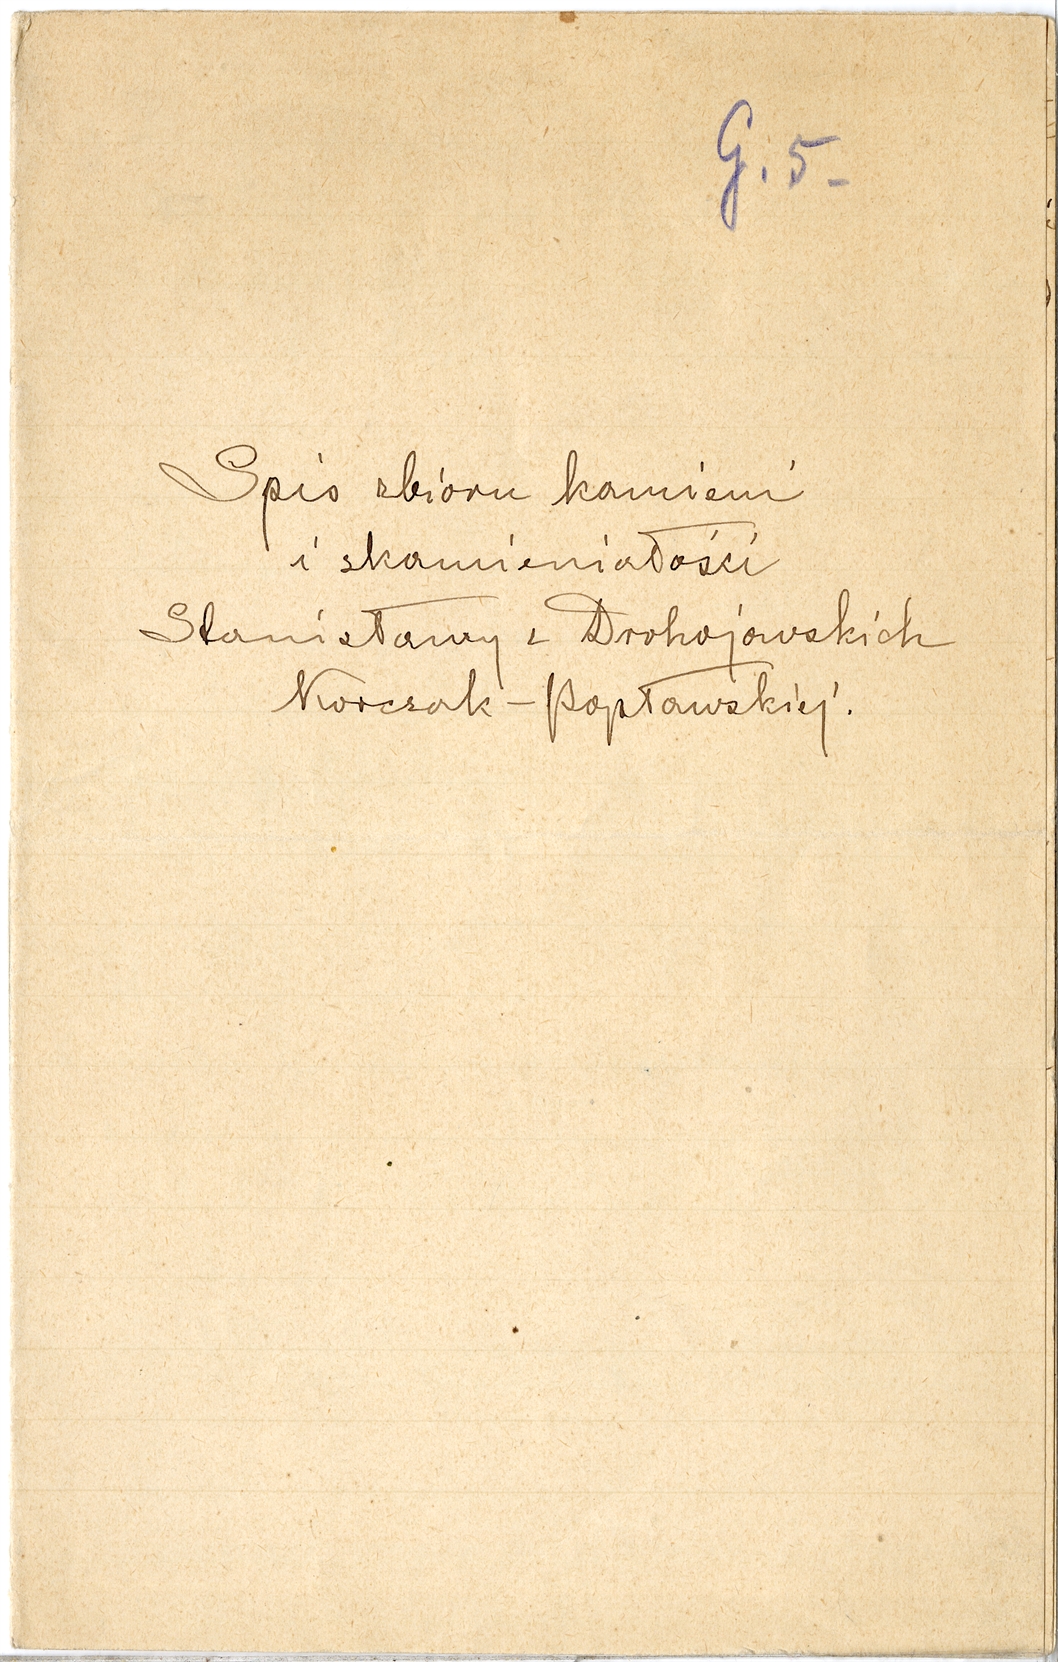 G. 5-
Spis zbioru kamieni
i skamieniałości
Stanisławy z Drohojowskich
Korczak-Popławskiej.